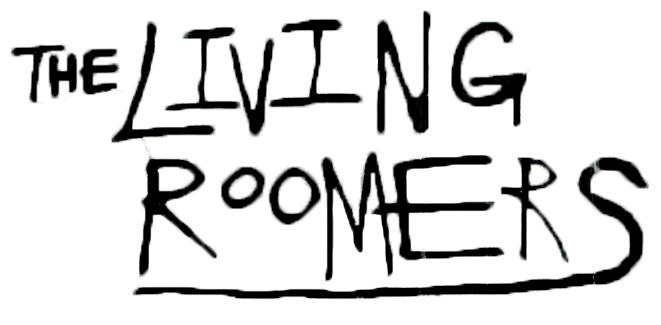 THE LIVING
ROOMERS